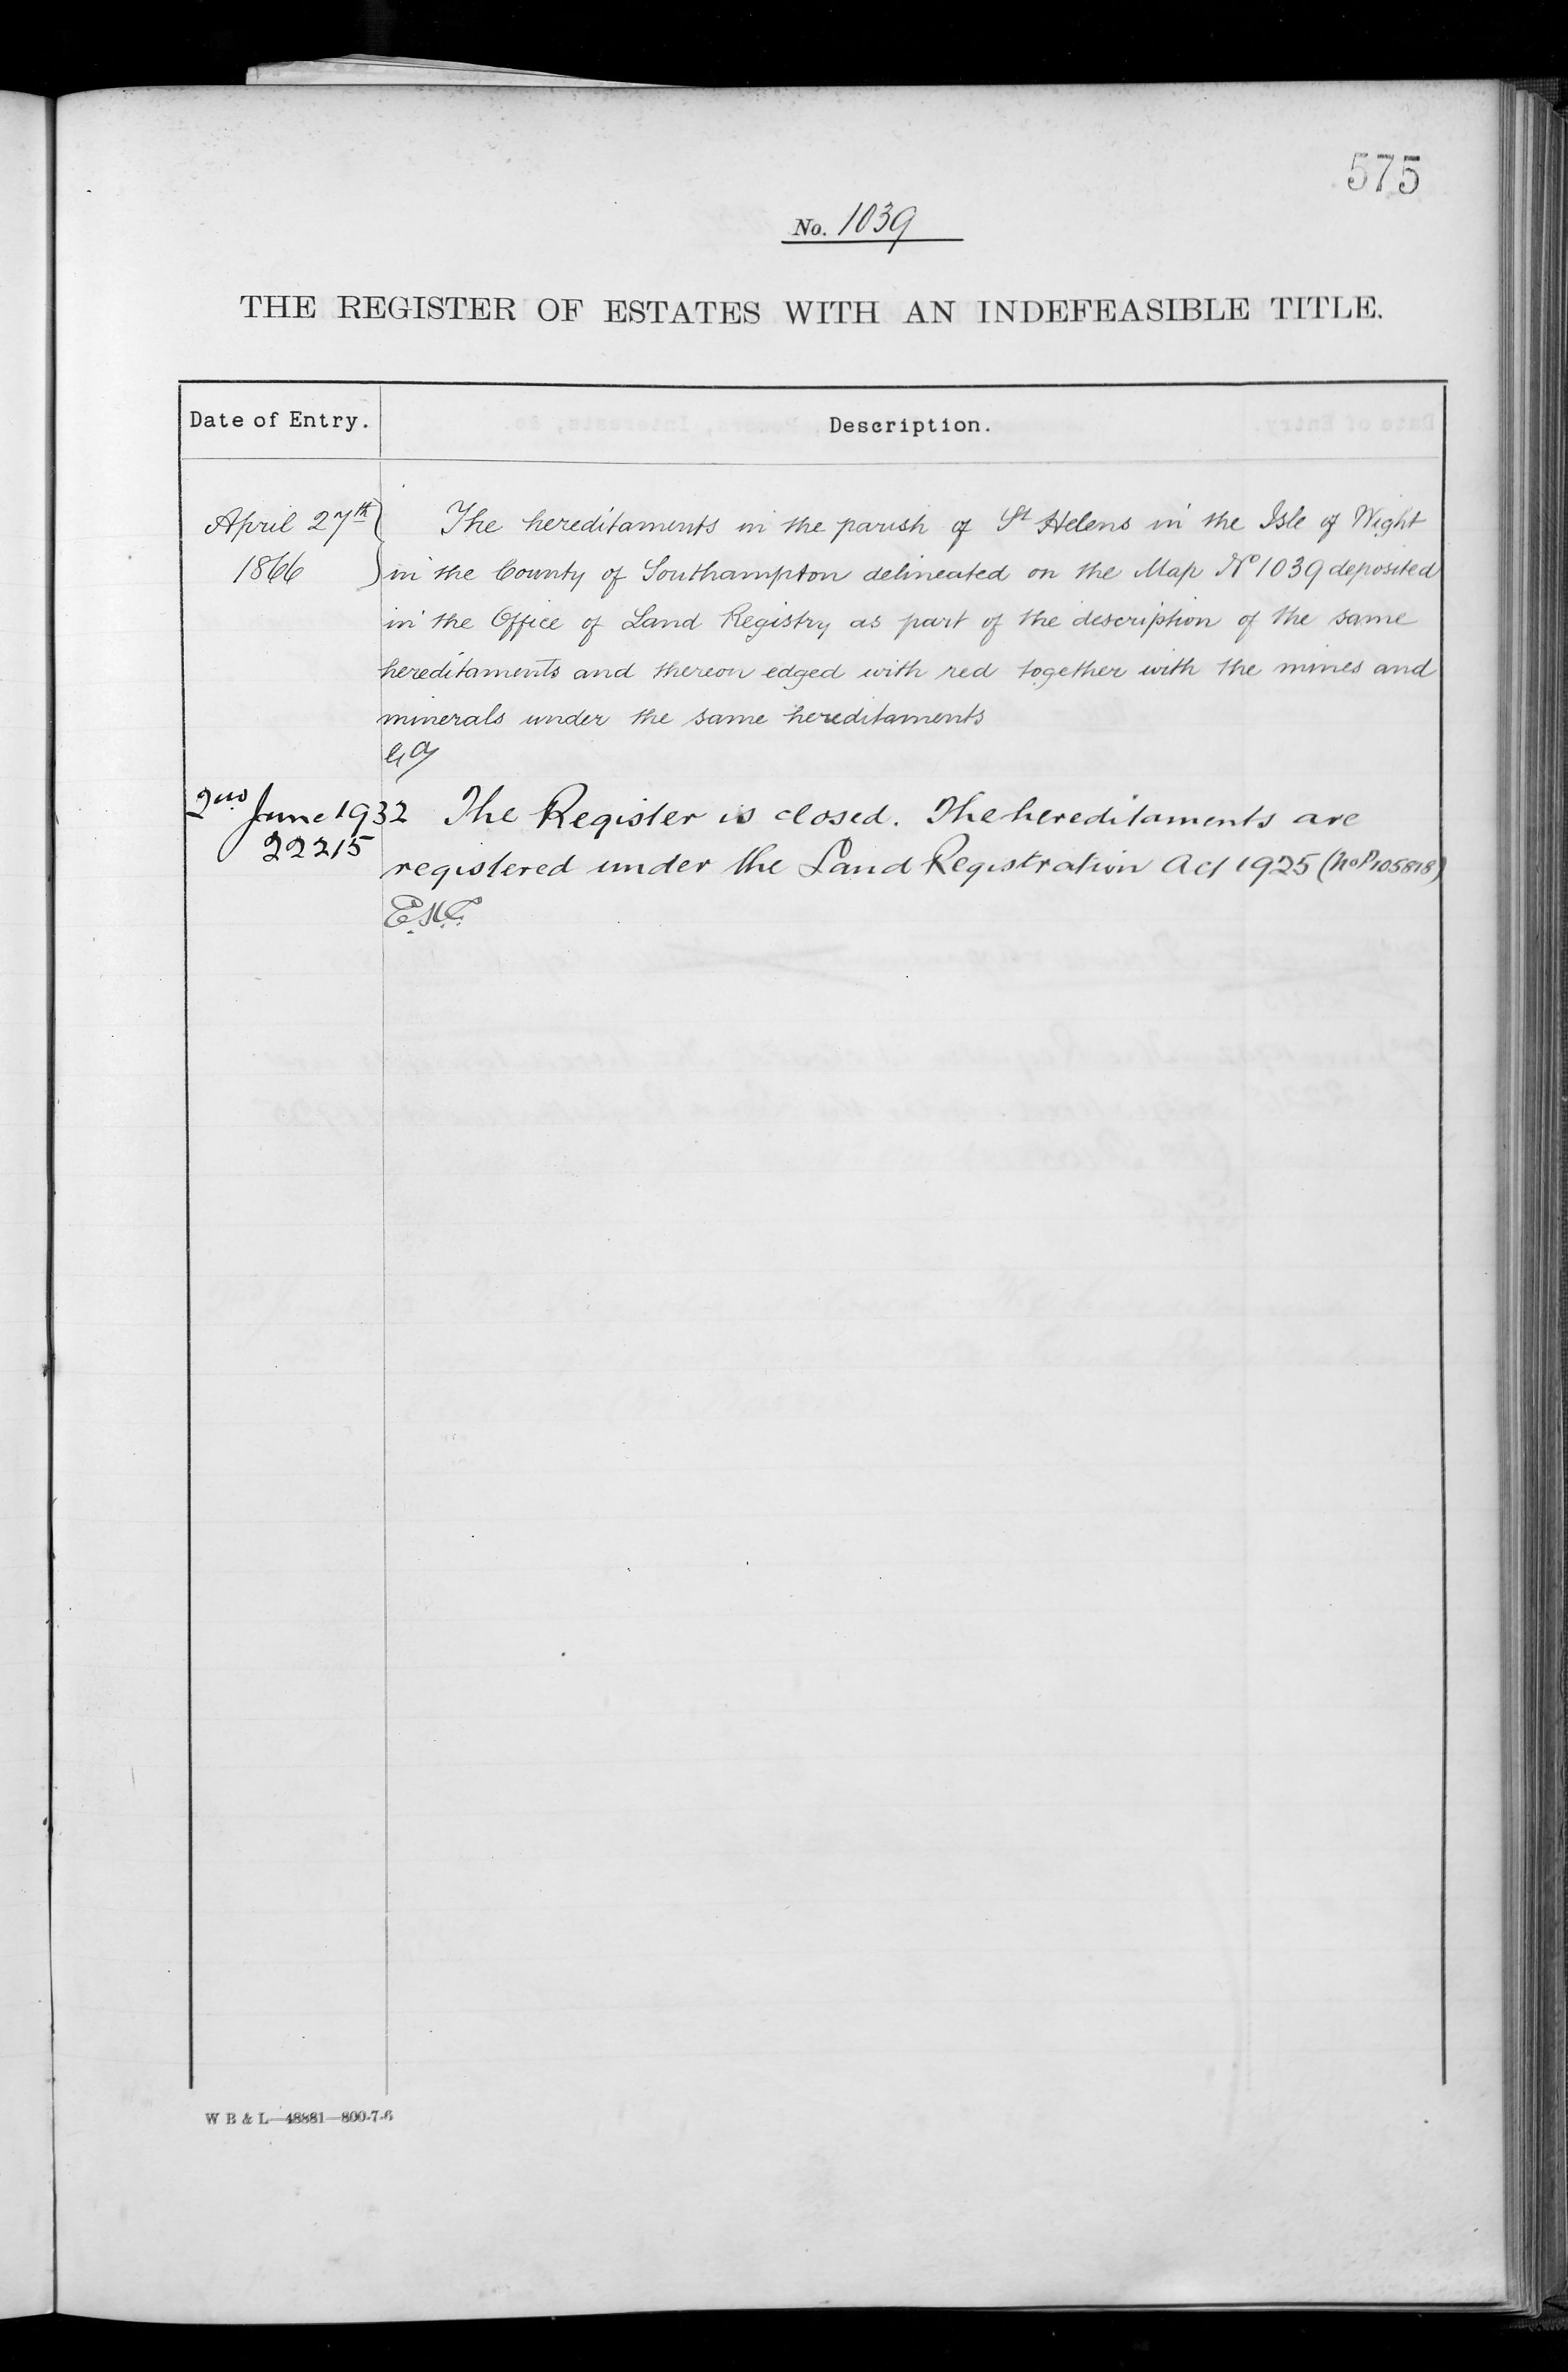 575
No. 1039
THE REGISTER OF ESTATES WITH AN INDEFEASIBLE TITLE.
Date of Entry. Description.
April 27th The hereditaments in the parish of St Helens in the Isle of Wight
1866 in the County of Southampton delineated on the Map No 1039 deposited
in the Office of Land Registry as part of the description of the same
hereditaments and thereon edged with red together with the mines and
minerals under the same hereditaments
2nd June 1932 The Register is closed. The hereditaments are
22215 registered under the Land Registration Act 1925 (No P105818)
W B & L—48881—800-7-6